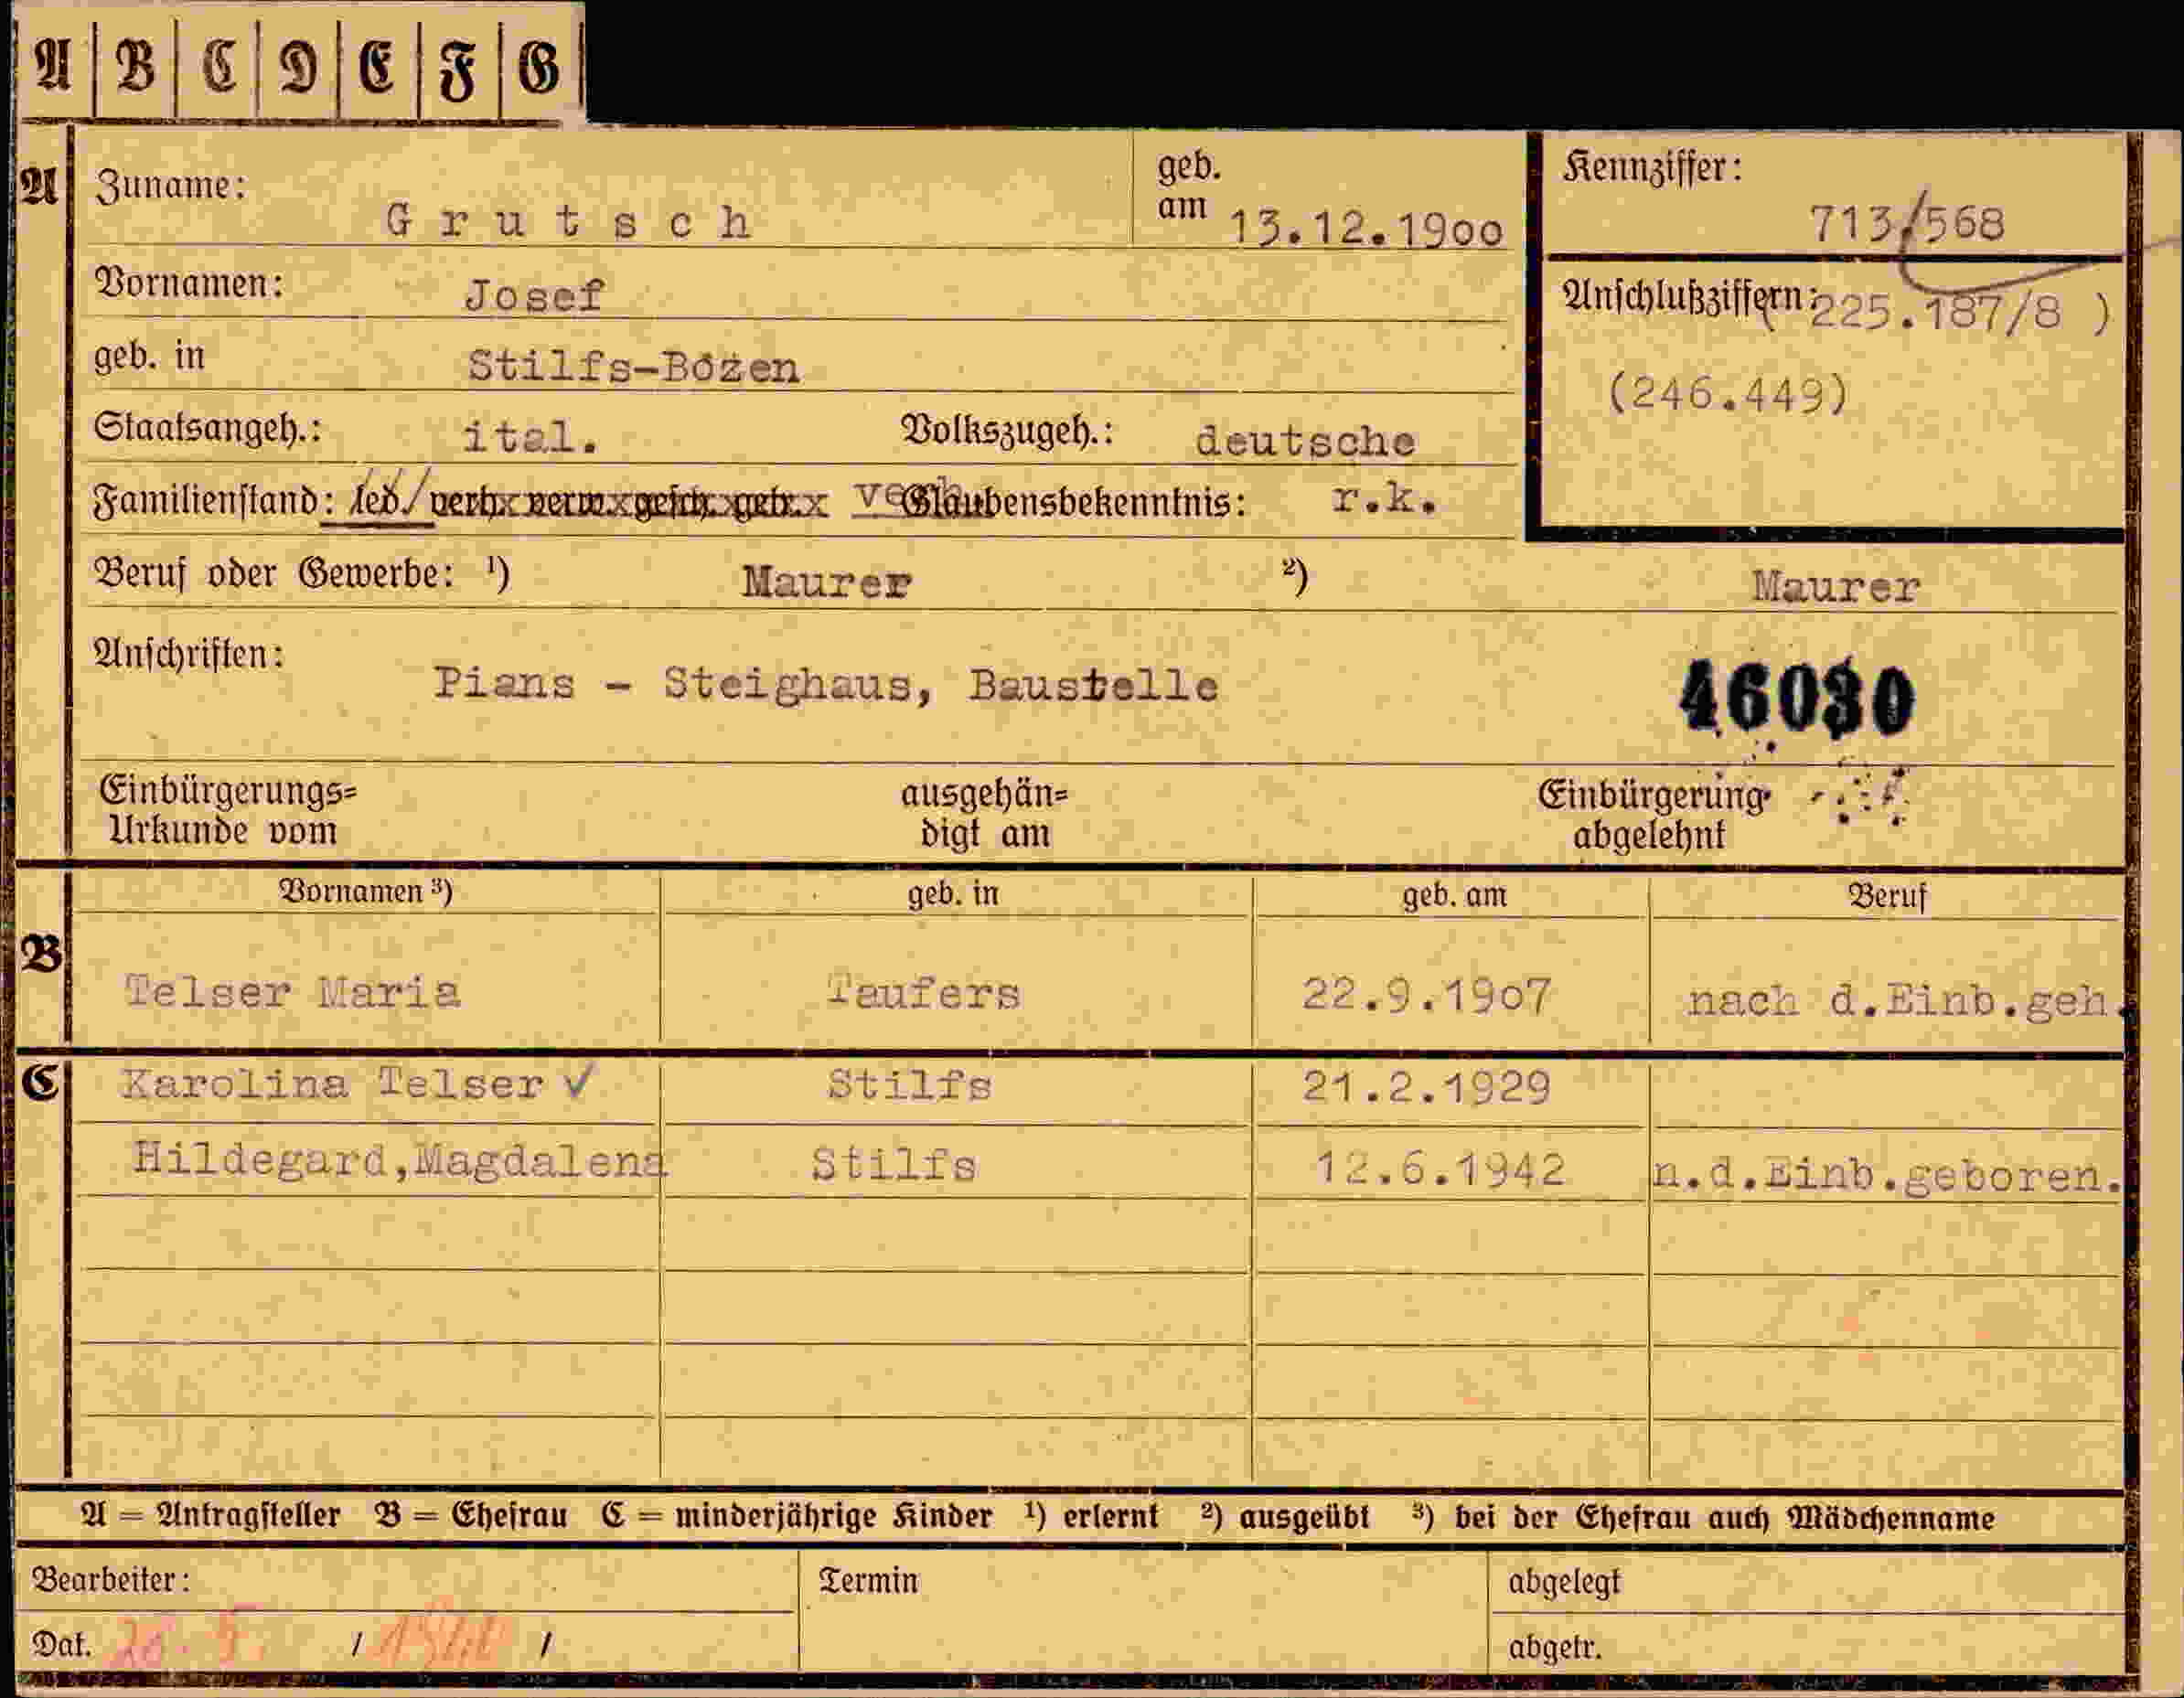 A B C D E F G
A Zuname: Grutsch geb. am 13.12.1900 Kennziffer: 713/568
Vornamen: Josef Anschlußziffern: (225.187/8 )
geb. in Stilfs-Bozen (246.449)
Staatsangeh.: ital. Volkszugeh.: deutsche
Familienstand: led/ verh. verw. gesch. getr. verh. Glaubensbekenntnis: r.k.
Beruf oder Gewerbe: ¹) Maurer ²) Maurer
Anschriften: Pians - Steighaus, Baustelle 46030
Einbürgerungs= ausgehän= Einbürgerung
Urkunde vom digt am abgelehnt
Vornamen ³) geb. in geb. am Beruf
B Telser Maria Taufers 22.9.1907 nach d.Einb.geh.
C Karolina Telser ✓ Stilfs 21.2.1929
Hildegard,Magdalena Stilfs 12.6.1942 n.d.Einb.geboren.
A = Antragsteller B = Ehefrau C = minderjährige Kinder ¹) erlernt ²) ausgeübt ³) bei der Ehefrau auch Mädchenname
Bearbeiter: Termin abgelegt
Dat. / / abgetr.